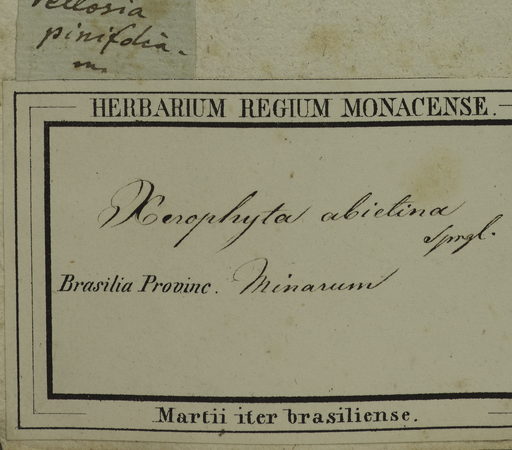 Vellosia
pinifolia.
m.
HERBARIUM REGIUM MONACENSE.
Xerophyta abietina
Sprgl.
Brasilia Provinc. Minarum
Martii iter brasiliense.